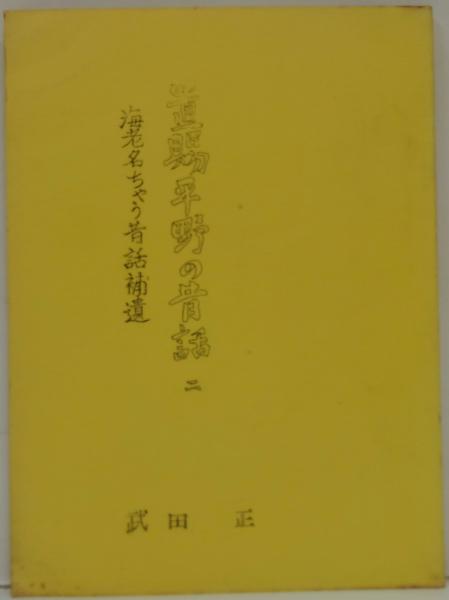 置賜平野の昔話 二
海老名ちやう昔話補遺
武田 正